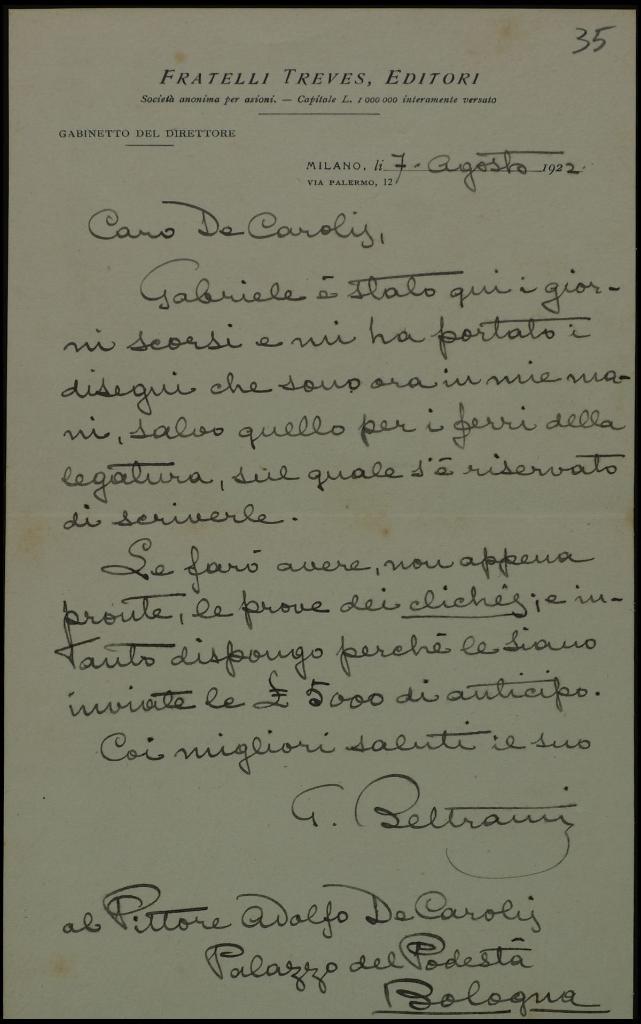 35
FRATELLI TREVES, EDITORI
Società anonima per azioni. — Capitale L. 1 000 000 interamente versato
GABINETTO DEL DIRETTORE
MILANO, li 7. Agosto 1922.
VIA PALERMO, 12
Caro De Carolis,
Gabriele è stato qui i gior-
ni scorsi e mi ha portato i
disegni che sono ora in mie ma-
ni, salvo quello per i ferri della
legatura, sul quale s'è riservato
di scriverle.
Le farò avere, non appena
pronte, le prove dei clichés; e in-
tanto dispongo perchè le siano
inviate le £ 5000 di anticipo.
Coi migliori saluti il suo
G. Beltrami
al Pittore Adolfo De Carolis
Palazzo del Podestà
Bologna